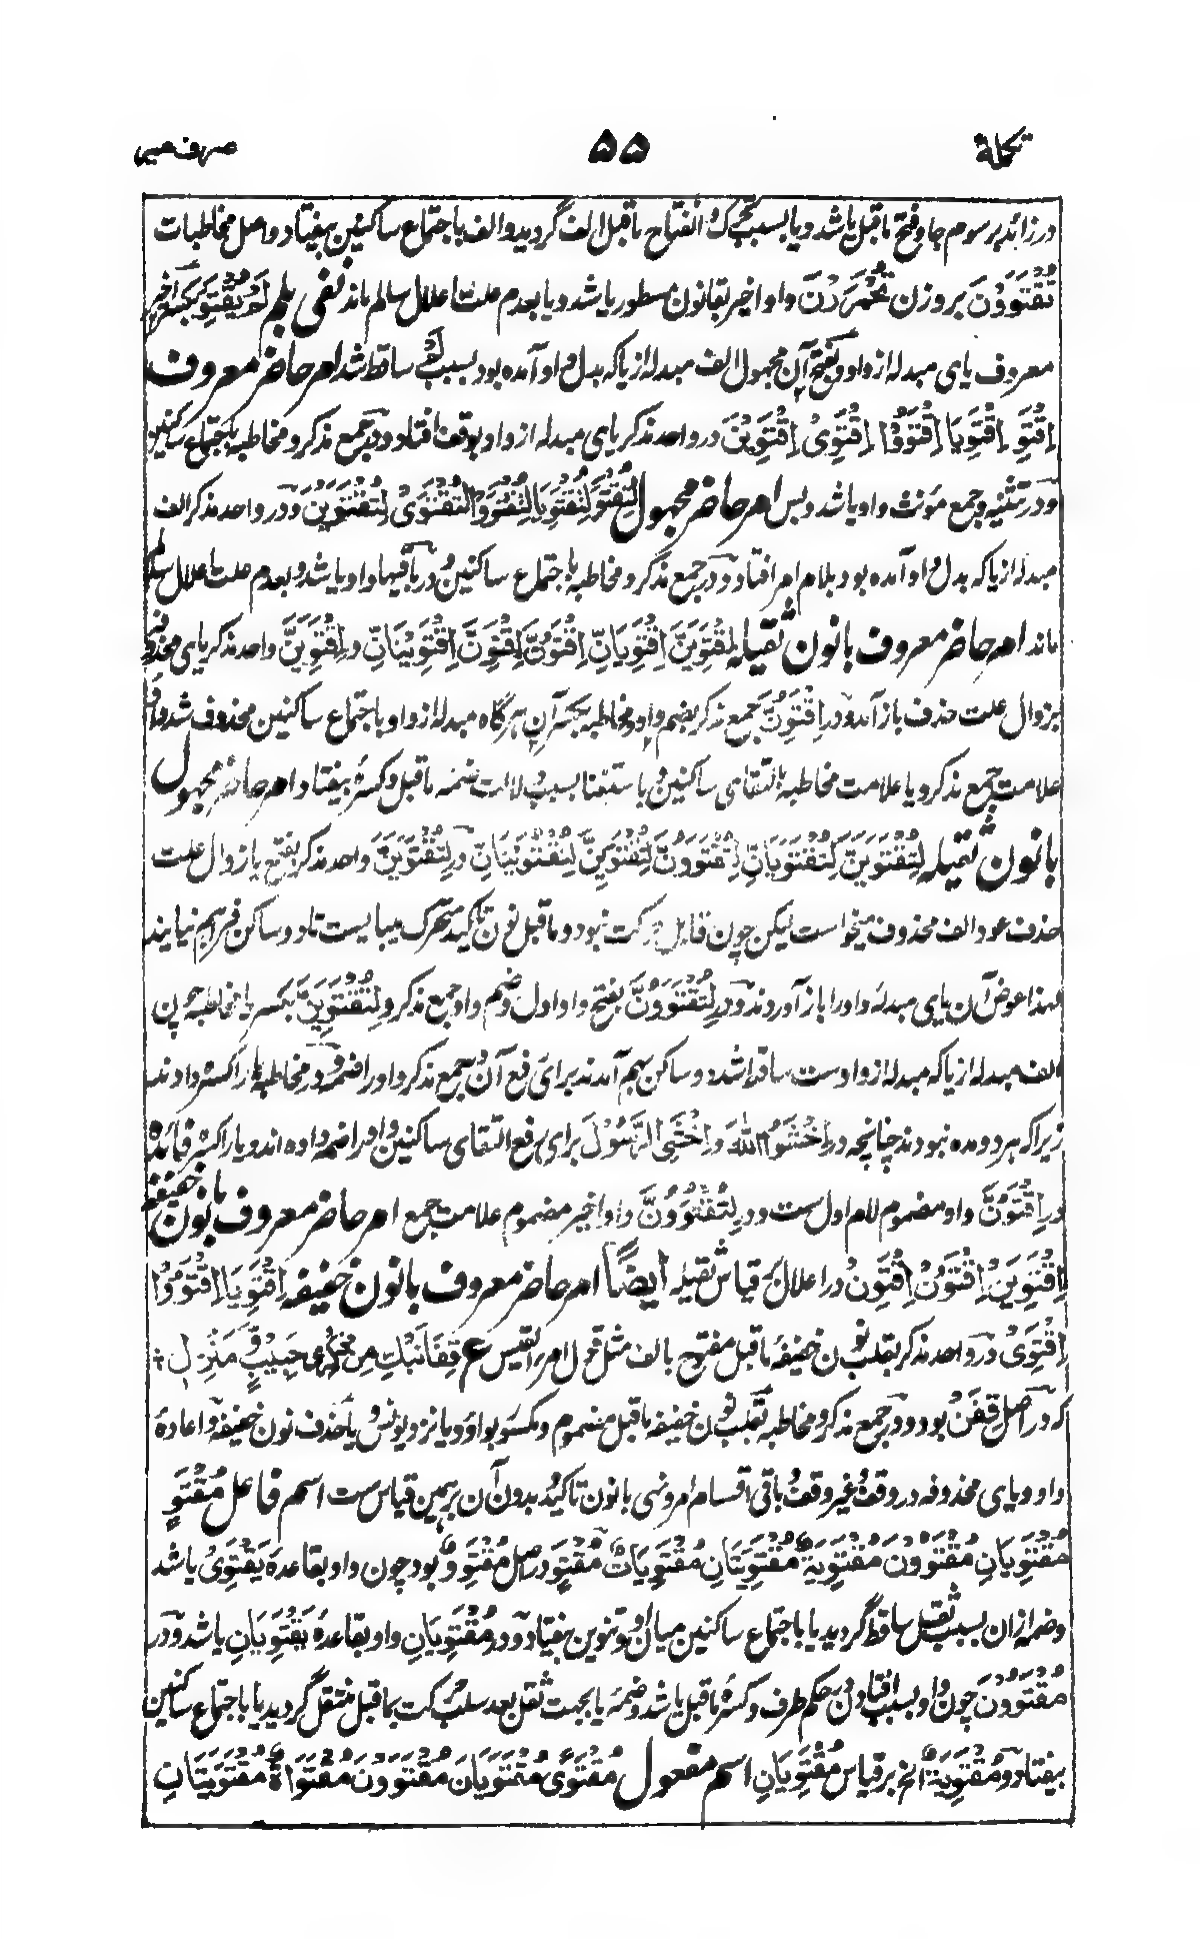 تکملة ۵۵ صرف میر
در زائد بر سوم جا و فتح ماقبل یا شد و یا بسبب تحرک و انفتاح ماقبل الف گردید و الف باجتماع ساکنین بیفتاد و اصل مخاطبات
تُقْتَوَوْنَ بروزن تُحْمَرَرْنَ واو اخیر بقانون مسطور یا شد و یا بعدم علت اعلال سالم ماند نفی بلم لَمْ یَقْتَوِ بکسر آخر
معروف یای مبدله از واو و بفتح آن مجهول الف مبدله از یا که بدل واو آمده بود بسبب لم ساقط شد امر حاضر معروف
اِقْتَوِ اِقْتَوِیَا اِقْتَوُوْا اِقْتَوِیْ اِقْتَوِیْنَ در واحد مذکر یای مبدله از واو بوقف افتاد و در جمع مذکر و مخاطبه باجتماع ساکنین
و در تثنیه و جمع مؤنث واو یا شد و بس امر حاضر مجهول لِتُقْتَوَ لِتُقْتَوَیَا لِتُقْتَوَوْا لِتُقْتَوَیْ لِتُقْتَوَیْنَ و در واحد مذکر الف
مبدله از یا که بدل واو آمده بود بلام امر افتاد و در جمع مذکر و مخاطبه باجتماع ساکنین و در باقیها واو یا شد و بعدم علت اعلال سالم
ماند امر حاضر معروف بانون ثقیله اِقْتَوِیَنَّ اِقْتَوِیَانِّ اِقْتَوُنَّ اِقْتَوِنَّ اِقْتَوِیْنَانِّ در اِقْتَوِیَنَّ واحد مذکر یای محذوفه
بزوال علت حذف باز آمد و در اِقْتَوُنَّ جمع مذکر بضم واو و مخاطبه بکسر آن هرگاه مبدله از واو باجتماع ساکنین محذوف شد واو
علامت جمع مذکر و یا علامت مخاطبه بالتقای ساکنین و باستغنا بسبب دلالت ضمه ماقبل و کسره بیفتاد امر حاضر مجهول
بانون ثقیله لِتُقْتَوَیَنَّ لِتُقْتَوَیَانِّ لِتُقْتَوَوُنَّ لِتُقْتَوَیِنَّ لِتُقْتَوَیْنَانِّ در لِتُقْتَوَیَنَّ واحد مذکر بفتح یا زوال علت
حذف عود الف محذوف میخواست لیکن چون قابل حرکت نبود و ماقبل نون تاکید متحرک میبایست تا دو ساکن فراهم نیایند
لهذا عوض آن یای مبدله واو را باز آوردند و در لِتُقْتَوَوُنَّ بفتح واو اول و ضم واو جمع مذکر و لِتُقْتَوَیِنَّ بکسر یا مخاطبه چون
الف مبدله از یا که مبدله از واوست ساقط شد دو ساکن بهم آمدند برای رفع آن جمع مذکر واو را ضمه و در مخاطبه یا را کسره دادند
زیرا که هر دو مده نبودند چنانچه در اِخْشَوُا اللّٰهَ و اِخْشَیِ الرَّسُوْلَ برای رفع التقای ساکنین واو را ضمه داده اند و یا را کسره فائده
در اِقْتَوُنَّ واو مضموم لام اول ست و در لِتُقْتَوَوُنَّ واو اخیر مضموم علامت جمع امر حاضر معروف بانون خفیفه
اِقْتَوِیَنْ اِقْتَوُنْ اِقْتَوِنْ در اعلال بر قیاس ثقیله ایضًا امر حاضر معروف بانون خفیفه اِقْتَوِیَا اِقْتَوُوْا
اِقْتَوِیْ در واحد مذکر بقلب نون خفیفه ماقبل مفتوح بالف مثل قول امرء القیس ع قِفَا نَبْكِ مِنْ ذِكْرٰی حَبِیْبٍ وَّ مَنْزِلِ
که در اصل قِفَنْ بود و در جمع مذکر و مخاطبه بقلب نون خفیفه ماقبل مضموم و مکسور بواو و یا نزد یونس یا حذف نون خفیفه و اعادهٔ
واو و یای محذوفه در وقف و غیر وقف و باقی اقسام امر و نهی بانون تاکید و بدون آن برهمین قیاس ست اسم فاعل مُقْتَوٍ
مُقْتَوِیَانِ مُقْتَوُوْنَ مُقْتَوِیَةٌ مُقْتَوِیَتَانِ مُقْتَوِیَاتٌ مُقْتَوٍ در اصل مُقْتَوِوٌ بود چون واو بقاعدهٔ یَقْتَوِیْ یا شد
و ضمه از ان بسبب ثقل ساقط گردید یا باجتماع ساکنین میان او و تنوین بیفتاد و در مُقْتَوِیَانِ واو بقاعدهٔ یَقْتَوِیَانِ یا شد و در
مُقْتَوُوْنَ چون واو بسبب افتادن در حکم طرف و کسرهٔ ماقبل یا شد و ضمهٔ یا بجهت ثقل بعد سلب حرکت بماقبل منتقل گردید یا باجتماع ساکنین
بیفتاد و مُقْتَوِیَةٌ الخ بر قیاس مُقْتَوِیَانِ اسم مفعول مُقْتَوًی مُقْتَوَیَانِ مُقْتَوَوْنَ مُقْتَوَاةٌ مُقْتَوَیَتَانِ